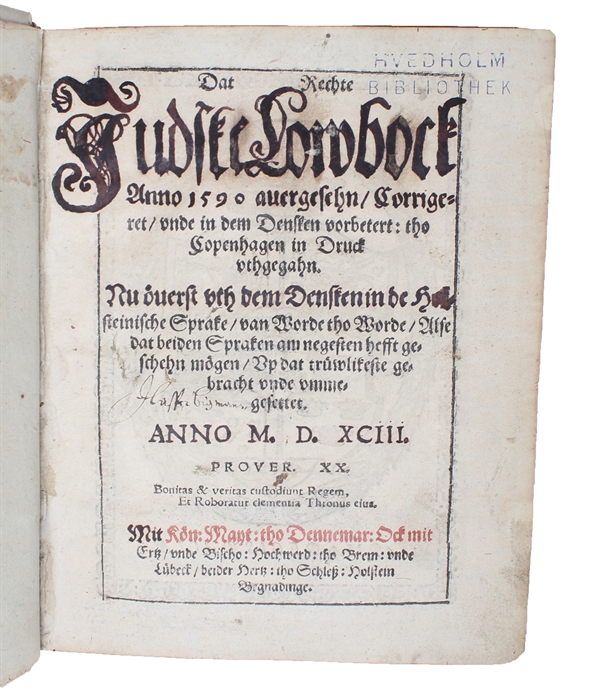 HVEDHOLM
BIBLIOTHEK
Dat Rechte
Judske Lowbock
Anno 1590 auergesehn/ Corrige-
ret/ vnde in dem Densken vorbetert: tho
Copenhagen in Druck
vthgegahn.
Nu öuerst vth dem Densken in de Hol-
steinische Sprake/ van Worde tho Worde/ Alse
dat beiden Spraken am negesten hefft ge-
schehn mögen/ Vp dat trüwlikeste ge-
bracht vnde vmme-
gesettet.
ANNO M. D. XCIII.
PROVER. XX.
Bonitas & veritas custodiunt Regem,
Et Roboratur clementia Thronus eius.
Mit Kön: Mayt: tho Dennemar: Ock mit
Ertz/ vnde Bischo: Hochwerd: tho Brem: vnde
Lübeck/ beider Hertz: tho Schleß: Holstein
Begnadinge.